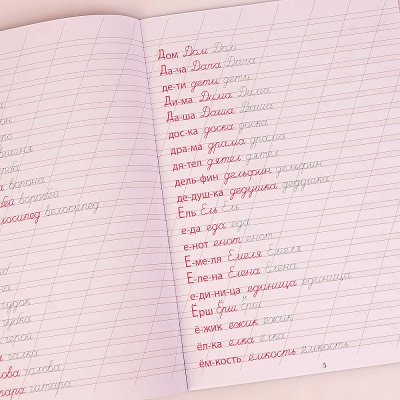 вишня
ворона
воробей
велосипед велосипед
гудок
герой
галка
голова
гитара гитара
Дом Дом Дом
Да-ча Дача Дача
де-ти дети дети
Ди-ма Дима Дима
Да-ша Даша Даша
дос-ка доска доска
дра-ма драма драма
дя-тел дятел дятел
дель-фин дельфин дельфин
де-душ-ка дедушка дедушка
Ель Ель Ель
е-да еда еда
е-нот енот енот
Е-ме-ля Емеля Емеля
Е-ле-на Елена Елена
е-ди-ни-ца единица единица
Ёрш Ёрш Ёрш
ё-жик ёжик ёжик
ёл-ка ёлка ёлка
ём-кость ёмкость ёмкость
5